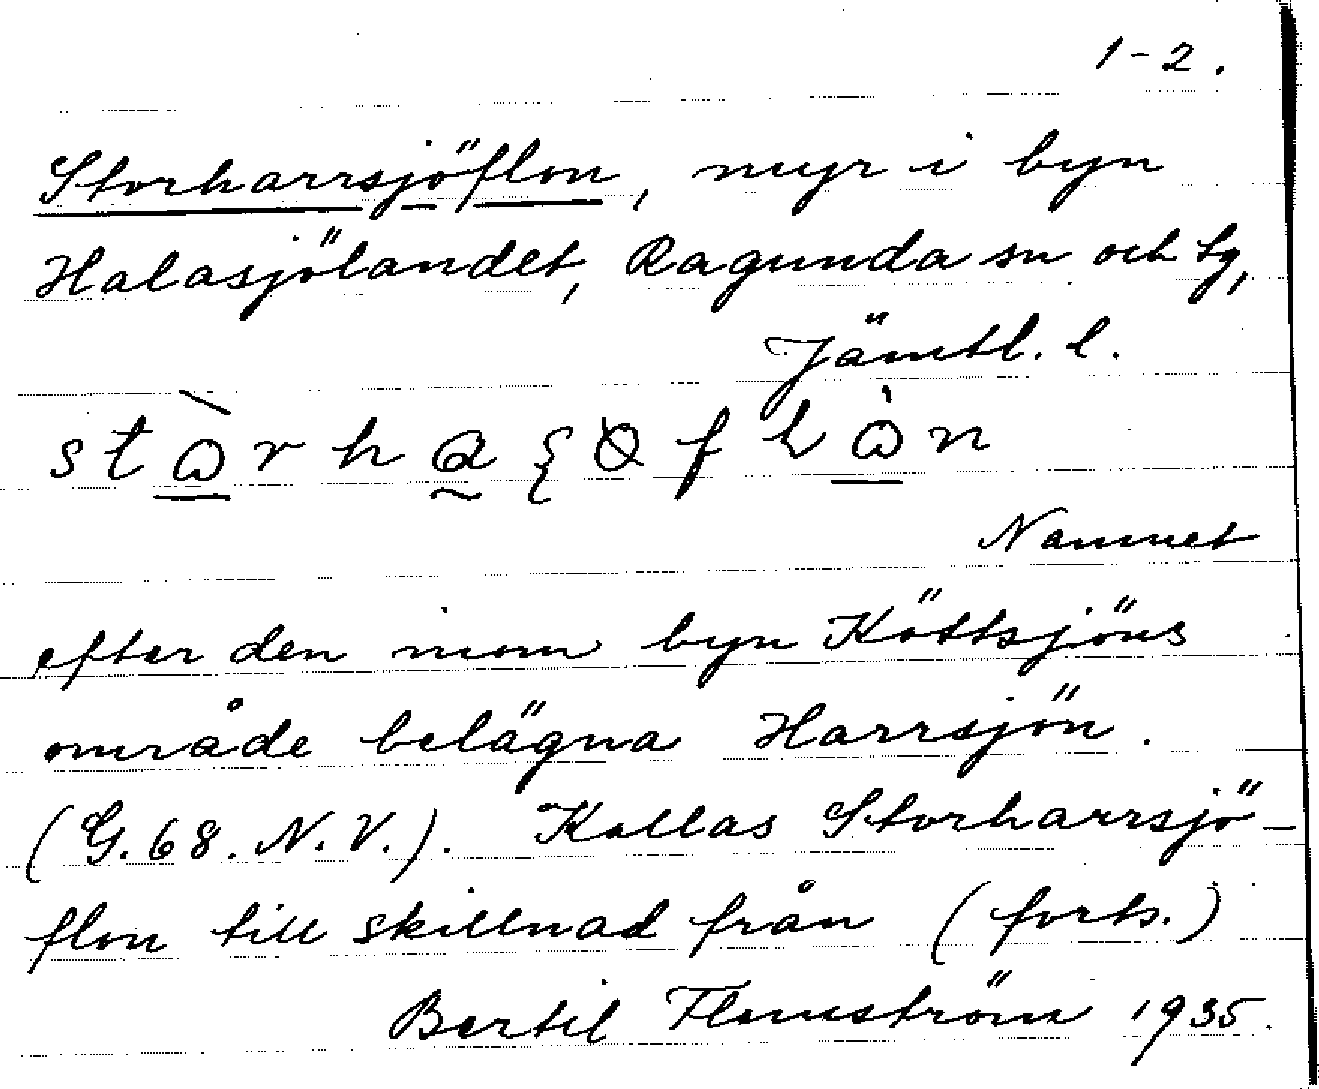 1-2.
Storharrsjöflon, myr i byn
Halasjölandet, Ragunda sn och tg,
Jämtl. l.
Namnet
efter den inom byn Köttsjöns
område belägna Harrsjön.
(G. 68. N. V.). Kallas Storharrsjö-
flon till skillnad från (forts.)
Bertil Flemström 1935.